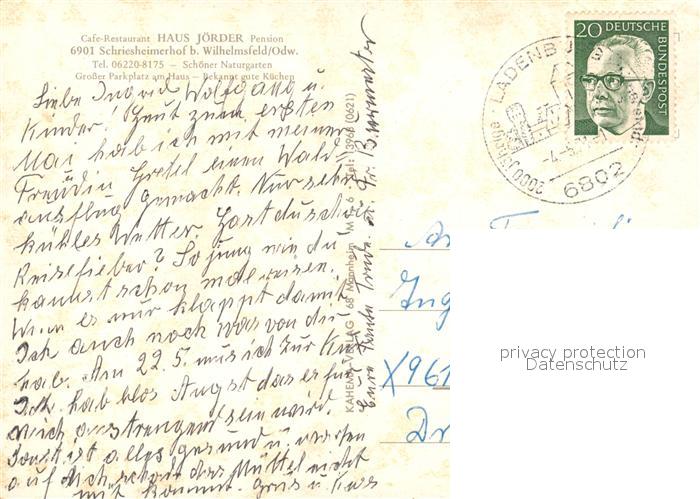 Cafe-Restaurant HAUS JÖRDER Pension
6901 Schriesheimerhof b. Wilhelmsfeld/Odw.
Tel. 06220-8175 — Schöner Naturgarten
Großer Parkplatz am Haus — Bekannt gute Küchen
Liebe Ingrid Wolfgang u.
Kinder! Heut zum ersten
Mai hab ich mit meiner
Freundin Gretel einen Wald
ausflug gemacht. Nur sehr
kühles Wetter. Hast du schon
Reisefieber? So jung wie du
kannst schon mal reisen.
Wenn es nur klappt damit
Ich auch noch was von dir
hab. Am 22.5. mus ich zur Kur
Ich hab blos Angst das es für
mich anstrengend sein wird.
Sonst ist alles gesund u. warten
auf dich, schad das Müttel nicht
mit kommt. Grus u Kuss
Eure Tante
KAHEMA VERLAG 68 Mannheim
3966 (0621)
20 DEUTSCHE
BUNDESPOST
LADENBURG
2000 jährige
6802
An
Ing
X961
Dr
privacy protection
Datenschutz